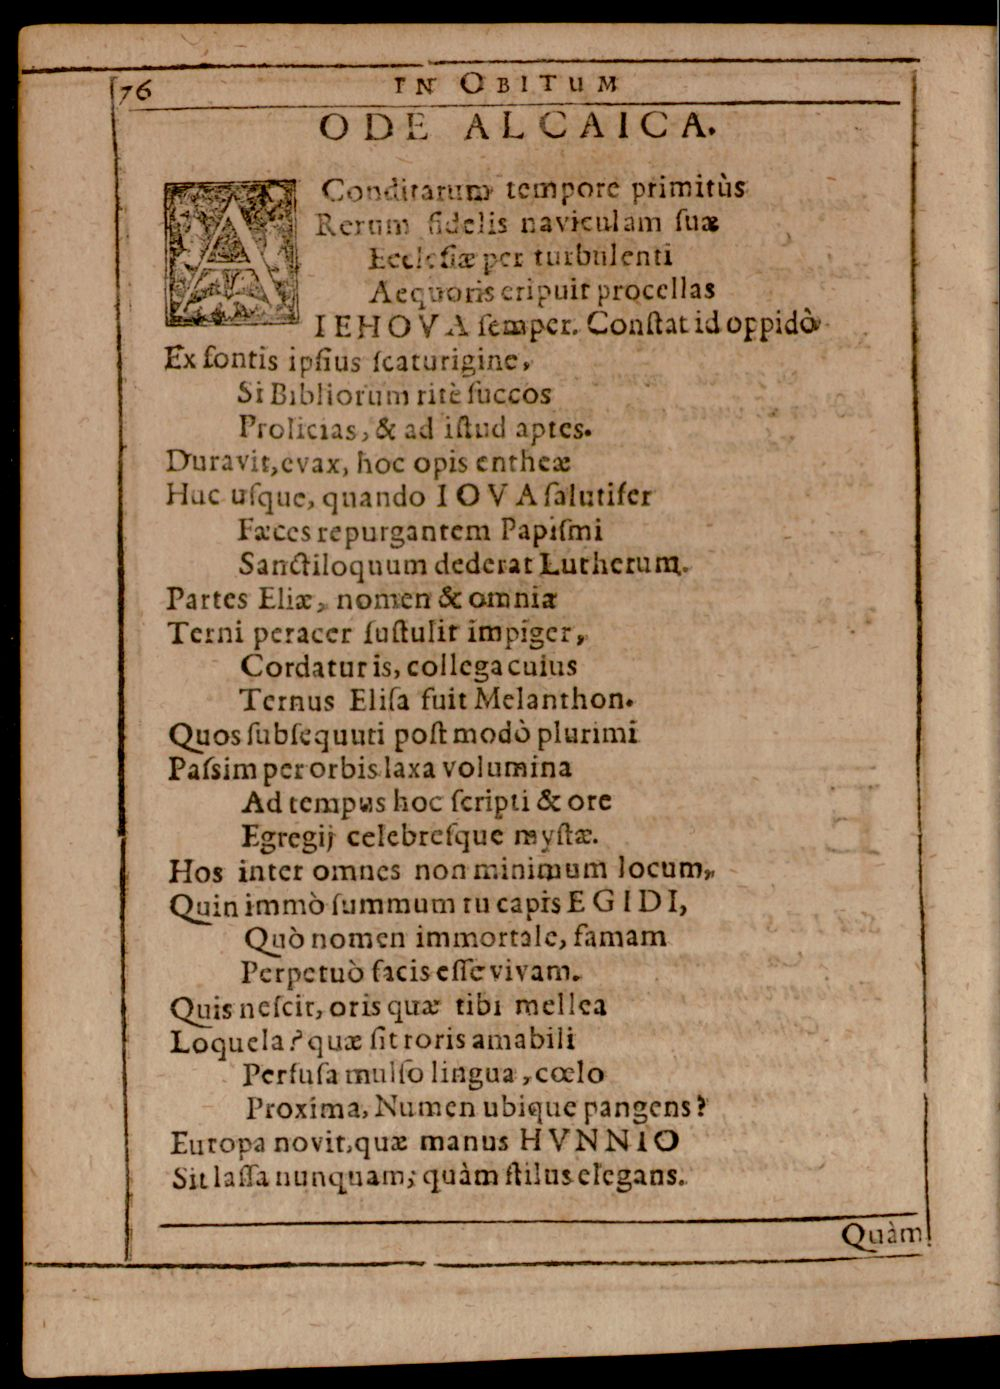 76 IN OBITUM
ODE ALCAICA.
A Conditarum tempore primitùs
Rerum fidelis naviculam ſuæ
Eccleſiæ per turbulenti
Aequoris eripuit procellas
IEHOVA ſemper. Conſtat id oppidò
Ex fontis ipſius ſcaturigine,
Si Bibliorum ritè ſuccos
Prolicias, & ad iſtud aptes.
Duravit, evax, hoc opis entheæ
Huc uſque, quando IOVA ſalutifer
Fæces repurgantem Papiſmi
Sanctiloquum dederat Lutherum.
Partes Eliæ, nomen & omnia
Terni peracer ſuſtulit impiger,
Cordatur is, collega cuius
Ternus Eliſa fuit Melanthon.
Quos ſubſequuti poſt modò plurimi
Paſsim per orbis laxa volumina
Ad tempus hoc ſcripti & ore
Egregij celebreſque myſtæ.
Hos inter omnes non minimum locum,
Quin immò ſummum tu capis EGIDI,
Quò nomen immortale, famam
Perpetuò facis eſſe vivam.
Quis neſcit, oris quæ tibi mellea
Loquela? quæ ſit roris amabili
Perfuſa mulſo lingua, cœlo
Proxima, Numen ubique pangens?
Europa novit, quæ manus HVNNIO
Sit laſſa nunquam; quàm ſtilus elegans.
Quàm